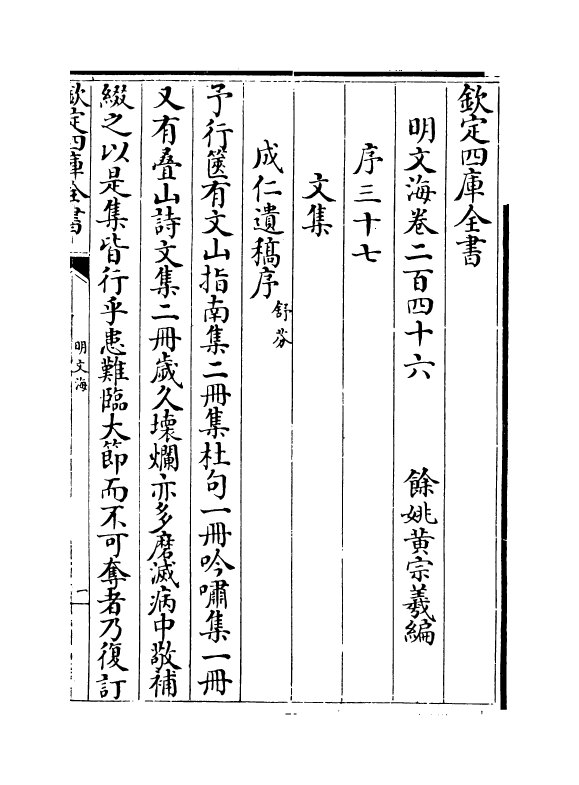 欽定四庫全書
明文海卷二百四十六　餘姚黃宗羲編
序三十七
文集
成仁遺稿序 舒芬
予行篋有文山指南集二冊集杜句一冊吟嘯集一冊
又有疊山詩文集二冊歲久壊爛亦多磨滅病中敬補
綴之以是集皆行乎患難臨大節而不可奪者乃復訂
欽定四庫全書
明文海
一